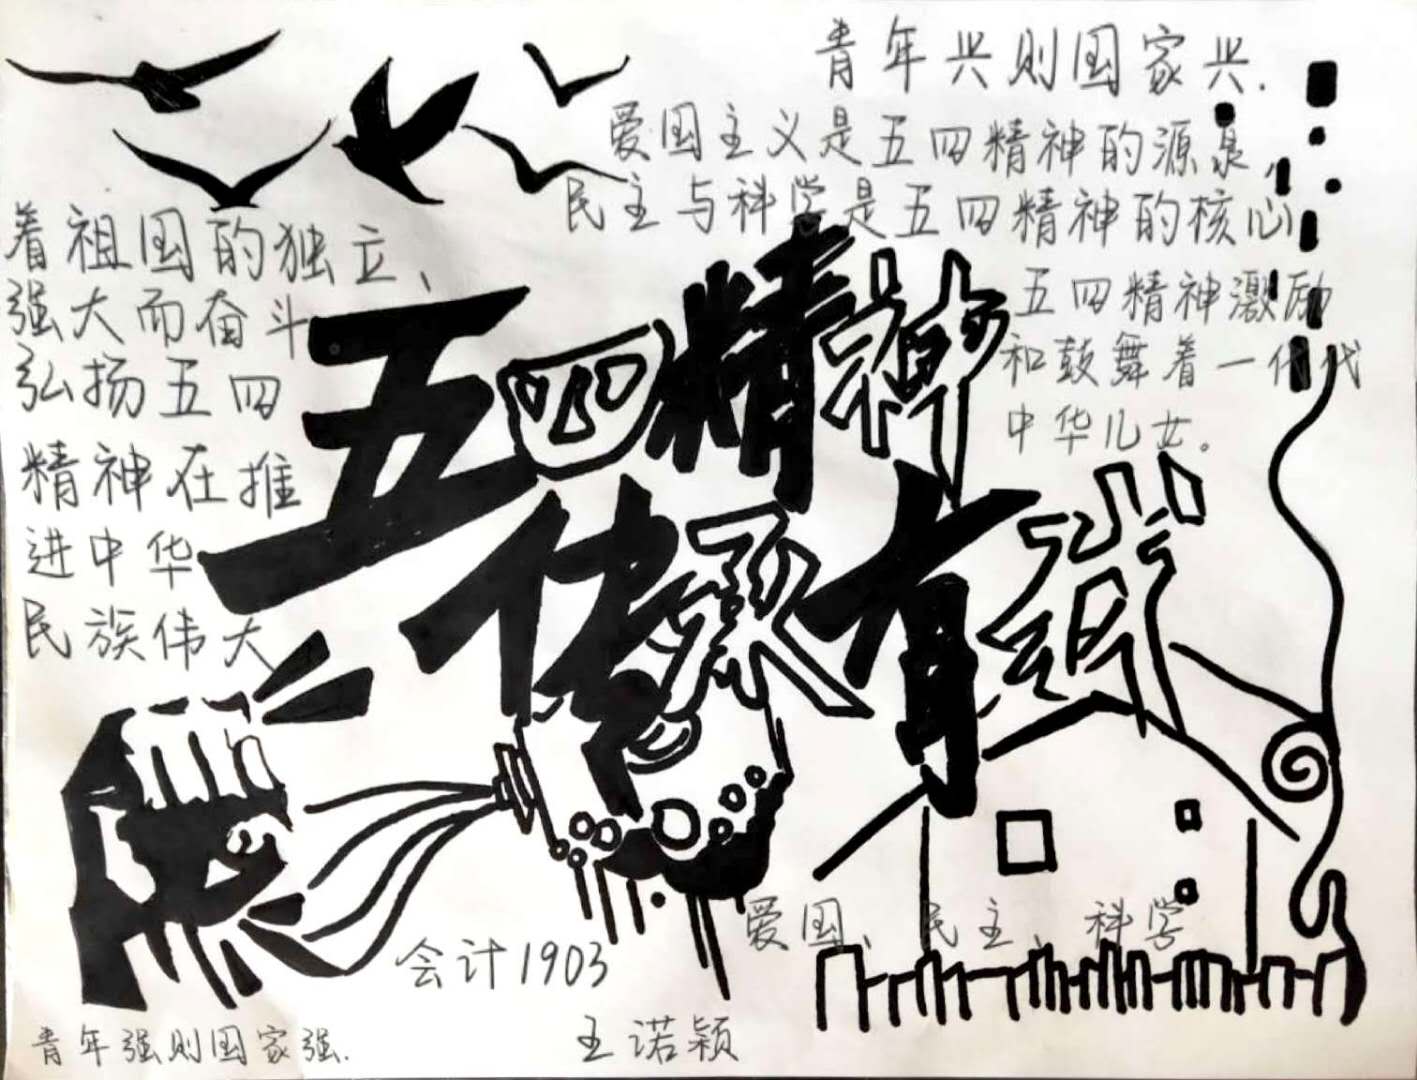 青年兴则国家兴.
爱国主义是五四精神的源泉,
民主与科学是五四精神的核心
五四精神激励
和鼓舞着一代代
中华儿女。
着祖国的独立、
强大而奋斗
弘扬五四
精神在推
进中华
民族伟大
五四精神
传承有我
爱国、民主、科学
会计1903
王诺颖
青年强则国家强.